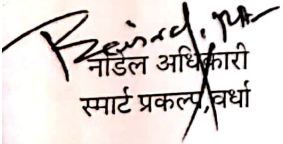 नोडल अधिकारी
स्मार्ट प्रकल्प, वर्धा